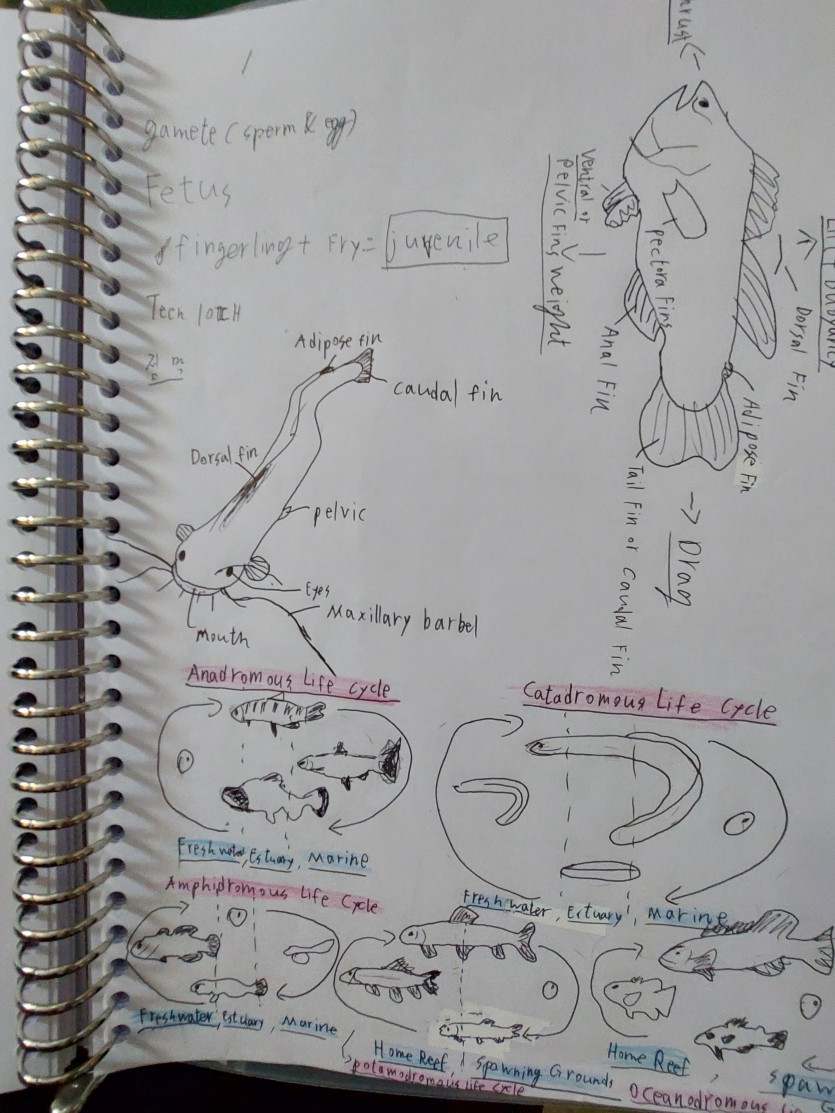 gamete (sperm & egg)
Fetus
fingerling + Fry = juvenile
Adipose fin
Caudal fin
Dorsal fin
pelvic
Eyes
Maxillary barbel
Mouth
Ventral or
Pelvic Fins
weight
pectora Fins
Anal Fin
Dorsal Fin
Adipose Fin
Tail Fin or Caudal Fin
-> Drag
Anadromous Life Cycle
Freshwater, Estuary, Marine
Catadromous Life Cycle
Freshwater, Estuary, Marine
Amphidromous Life Cycle
Freshwater, Estuary, Marine
Home Reef, Spawning Grounds
potamodromous life cycle
Home Reef,
Oceanodromous